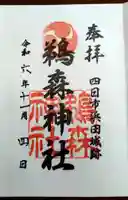 奉拝
四日市浜田城跡
鵜森神社
鵜森神社
令和六年十一月四日